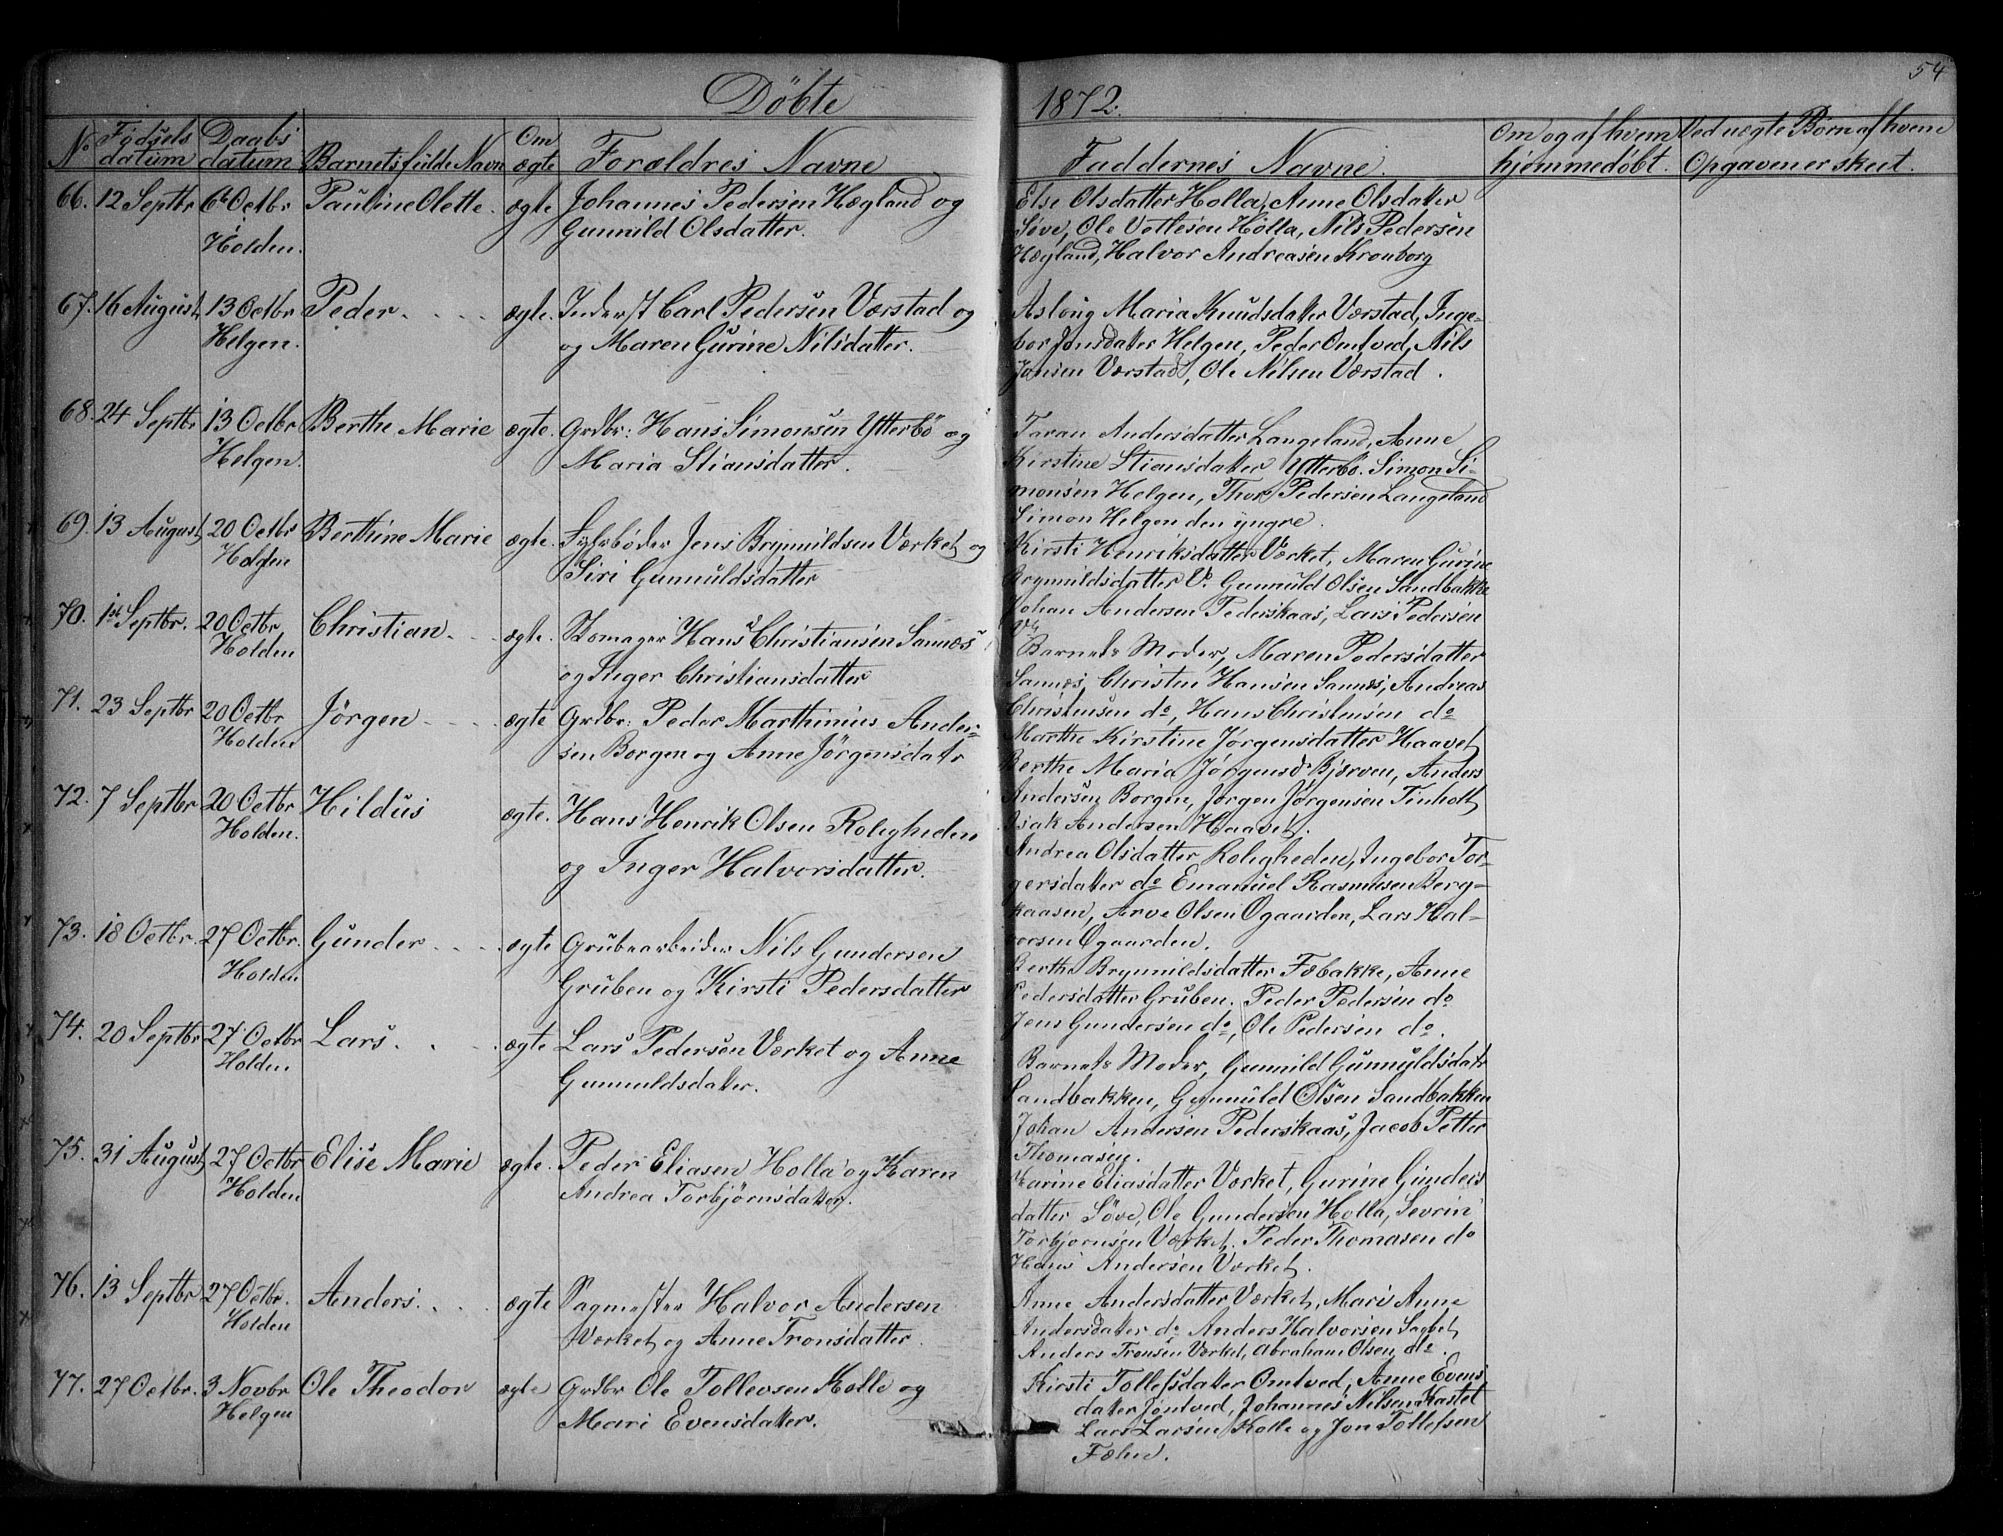 Döbte
1872.
54
No
Födsels datum
Daabs datum
Barnets fulde Navn
Om ægte
Forældres Navne
Faddernes Navne.
Om og af hvem hjemmedöbt.
Ved uægte Börn af hvem Opgaven er skeet.
66. 12 Septbr 6te Octbr Pauline Olette. ægte Johannes Pedersen Hægland og
Holden. Gunnild Olsdatter.
Else Olsdatter Holla, Anne Olsdatter
Söve, Ole Vetlesen Holla, Nils Pedersen
Hægland, Halvor Andreasen Kronborg
67. 16 August 13 Octbr Peder. ægte. Inderst Carl Pedersen Værstad og
Helgen. og Maren Gurine Nilsdatter.
Asloug Maria Knudsdatter Værstad, Inge-
bor Jonsdatter Helgen, Peder Omtved, Nils
Jonsen Værstad, Ole Nilsen Værstad.
68. 24 Septbr 13 Octbr Berthe Marie ægte. Grdbr: Hans Simonsen Ytterbö og
Helgen. Maria Stiansdatter.
Taran Andersdatter Langeland, Anne
Kirstine Stiansdatter Ytterbö. Simon Si-
monsen Helgen, Thor Pedersen Langeland
Simon Helgen den yngre.
69. 13 August 20 Octbr Berthine Marie ægte. Fyrböder Jens Brynnildsen Værket og
Holden Siri Gunnuldsdatter
Kirsti Henriksdatter Værket, Maren Gurine
Brynnildsdatter V. Gunnuld Olsen Sandbakke
Johan Andersen Pederskaas, Lars Pedersen
V.
70. 1ste Septbr. 20 Octbr Christian. ægte. Skomager Hans Christiansen Sannæs
Holden og Inger Christiansdatter
Barnets Moder, Maren Pedersdatter
Sannæs, Christen Hansen Sannæs, Andreas
Christensen do, Hans Christensen do
71. 23 Septbr 20 Octbr Jörgen ægte Grdbr: Peder Marthinius Ander-
Holden sen Borgen og Anne Jörgensdatr
Marthe Kirstine Jörgensdatter Haavet
Berthe Maria Jörgensdr Bjerven, Anders
Andersen Borgen, Jörgen Jörgensen Tinholt
Isak Andersen Haavet.
72. 7 Septbr 20 Octbr Hildus ægte. Hans Henrik Olsen Roligheden
Holden. og Inger Halvorsdatter.
Andrea Olsdatter Roligheden, Ingebor Tor-
gersdatter do Emanuel Rasmusen Berg-
kaasen, Arve Olsen Ögaarden, Lars Hal-
vorsen Ögaarden.
73. 18 Octbr. 27 Octbr. Gunder ægte Grubearbeider Nils Gundersen
Holden Gruben og Kirsti Pedersdatter
Berthe Brynnildsdatter Fæbakke, Anne
Pedersdatter Gruben. Peder Pedersen do
Jens Gundersen do, Ole Pedersen do.
74. 20 Septbr 27 Octbr Lars. ægte Lars Pedersen Værket og Anne
Holden. Gunnuldsdatter.
Barnets Moder, Gunnild Gunnuldsdatr
Sandbakken, Gunnuld Olsen Sandbakken
Johan Andersen Pederskaas, Jacob Petter
Thomasen.
75. 31 August 27 Octbr Elise Marie ægte. Peder Eliasen Holla og Karen
Holden Andrea Torbjörnsdatter.
Karine Eliasdatter Værket, Gurine Gunders
datter Söve, Ole Gundersen Holla, Sevrin
Torbjornsen Værket. Peder Thomasen do
Hans Andersen Værket.
76. 13 Septbr 27 Octbr. Anders. ægte Sagmester Halvor Andersen
Holden Værket og Anne Tronsdatter.
Anne Andersdatter Værket, Mari Anne
Andersdatter do Anders Halvorsen Saget
Anders Tronsen Værket, Abraham Olsen do.
77. 27 Octbr. 3 Novbr Ole Theodor ægte Grdbr Ole Tollevsen Kolle og
Helgen Mari Evensdatter.
Kirsti Tollefsdatter Omtved, Anne Evens
datter Jöntved, Johannes Nilsen Kastet
Lars Larsen Kolle og Jon Tollefsen
Fæhn.